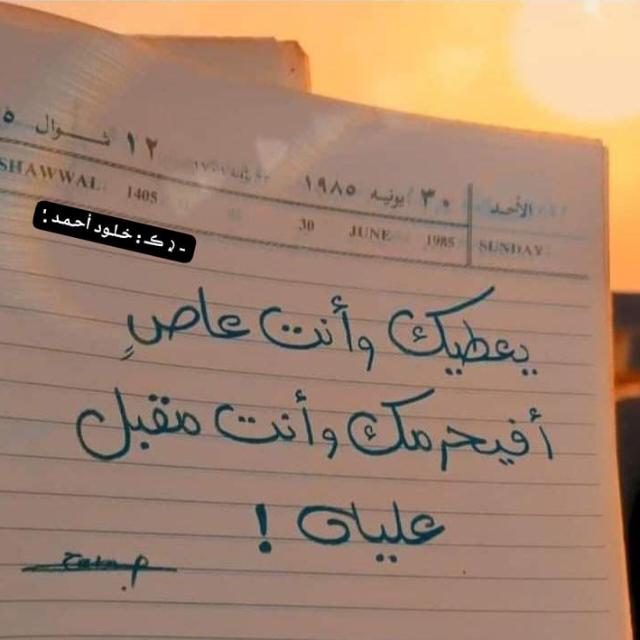 الأحد ٣٠ يونيه ١٩٨٥ ١٢ شوال
SHAWWAL 1405 30 JUNE 1985 SUNDAY
خلود أحمد :
يعطيك وأنت عاصٍ
أفيحرمك وأنت مقبل
علياى !